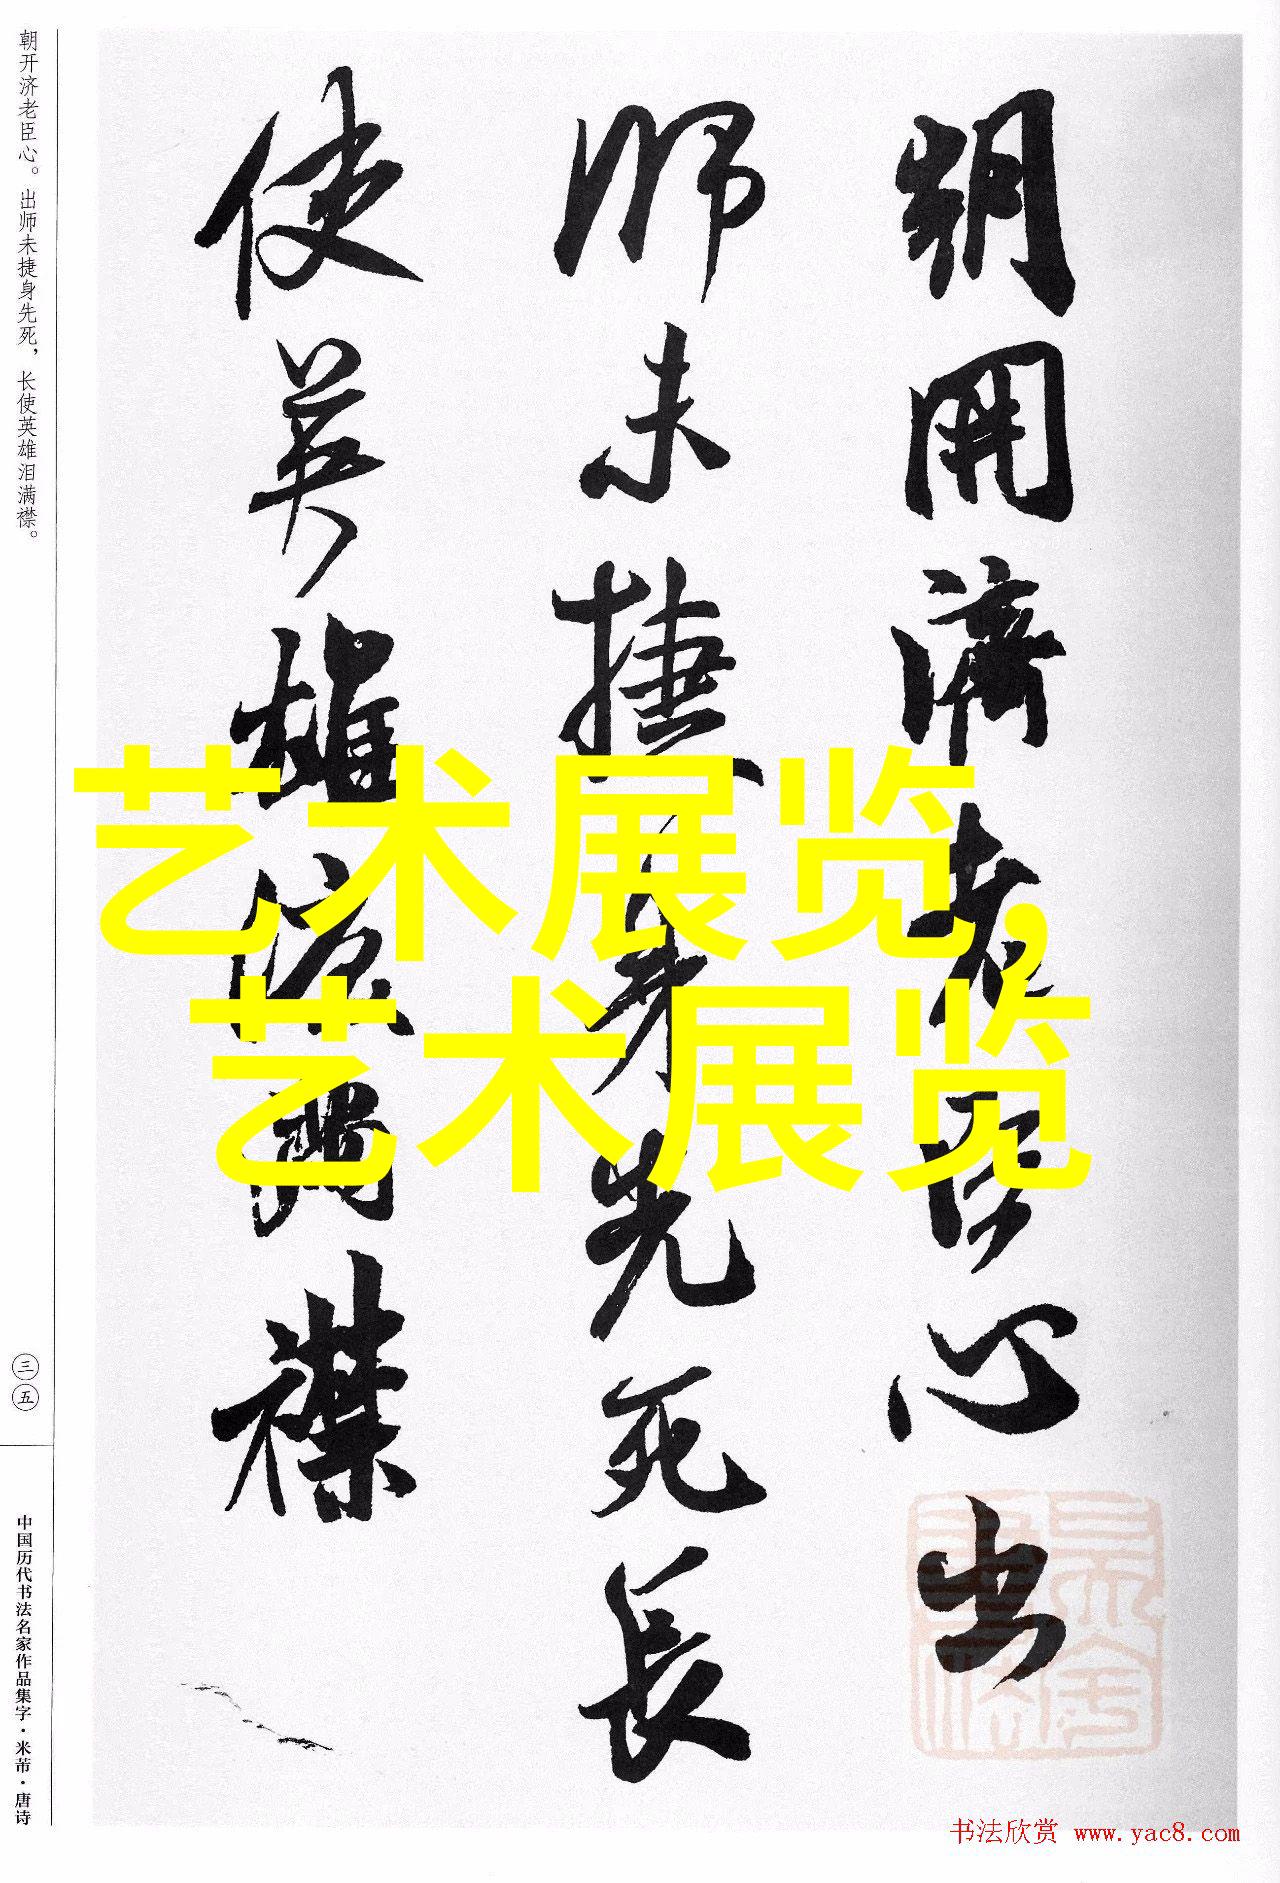 朝开济老臣心。出师未捷身先死，长使英雄泪满襟。
三五
中国历代书法名家作品集字·米芾·唐诗
朝開濟老臣心出
師未捷身先死長
使英雄淚滿襟
艺术展览,
艺术展览
书法欣赏 www.yac8.com